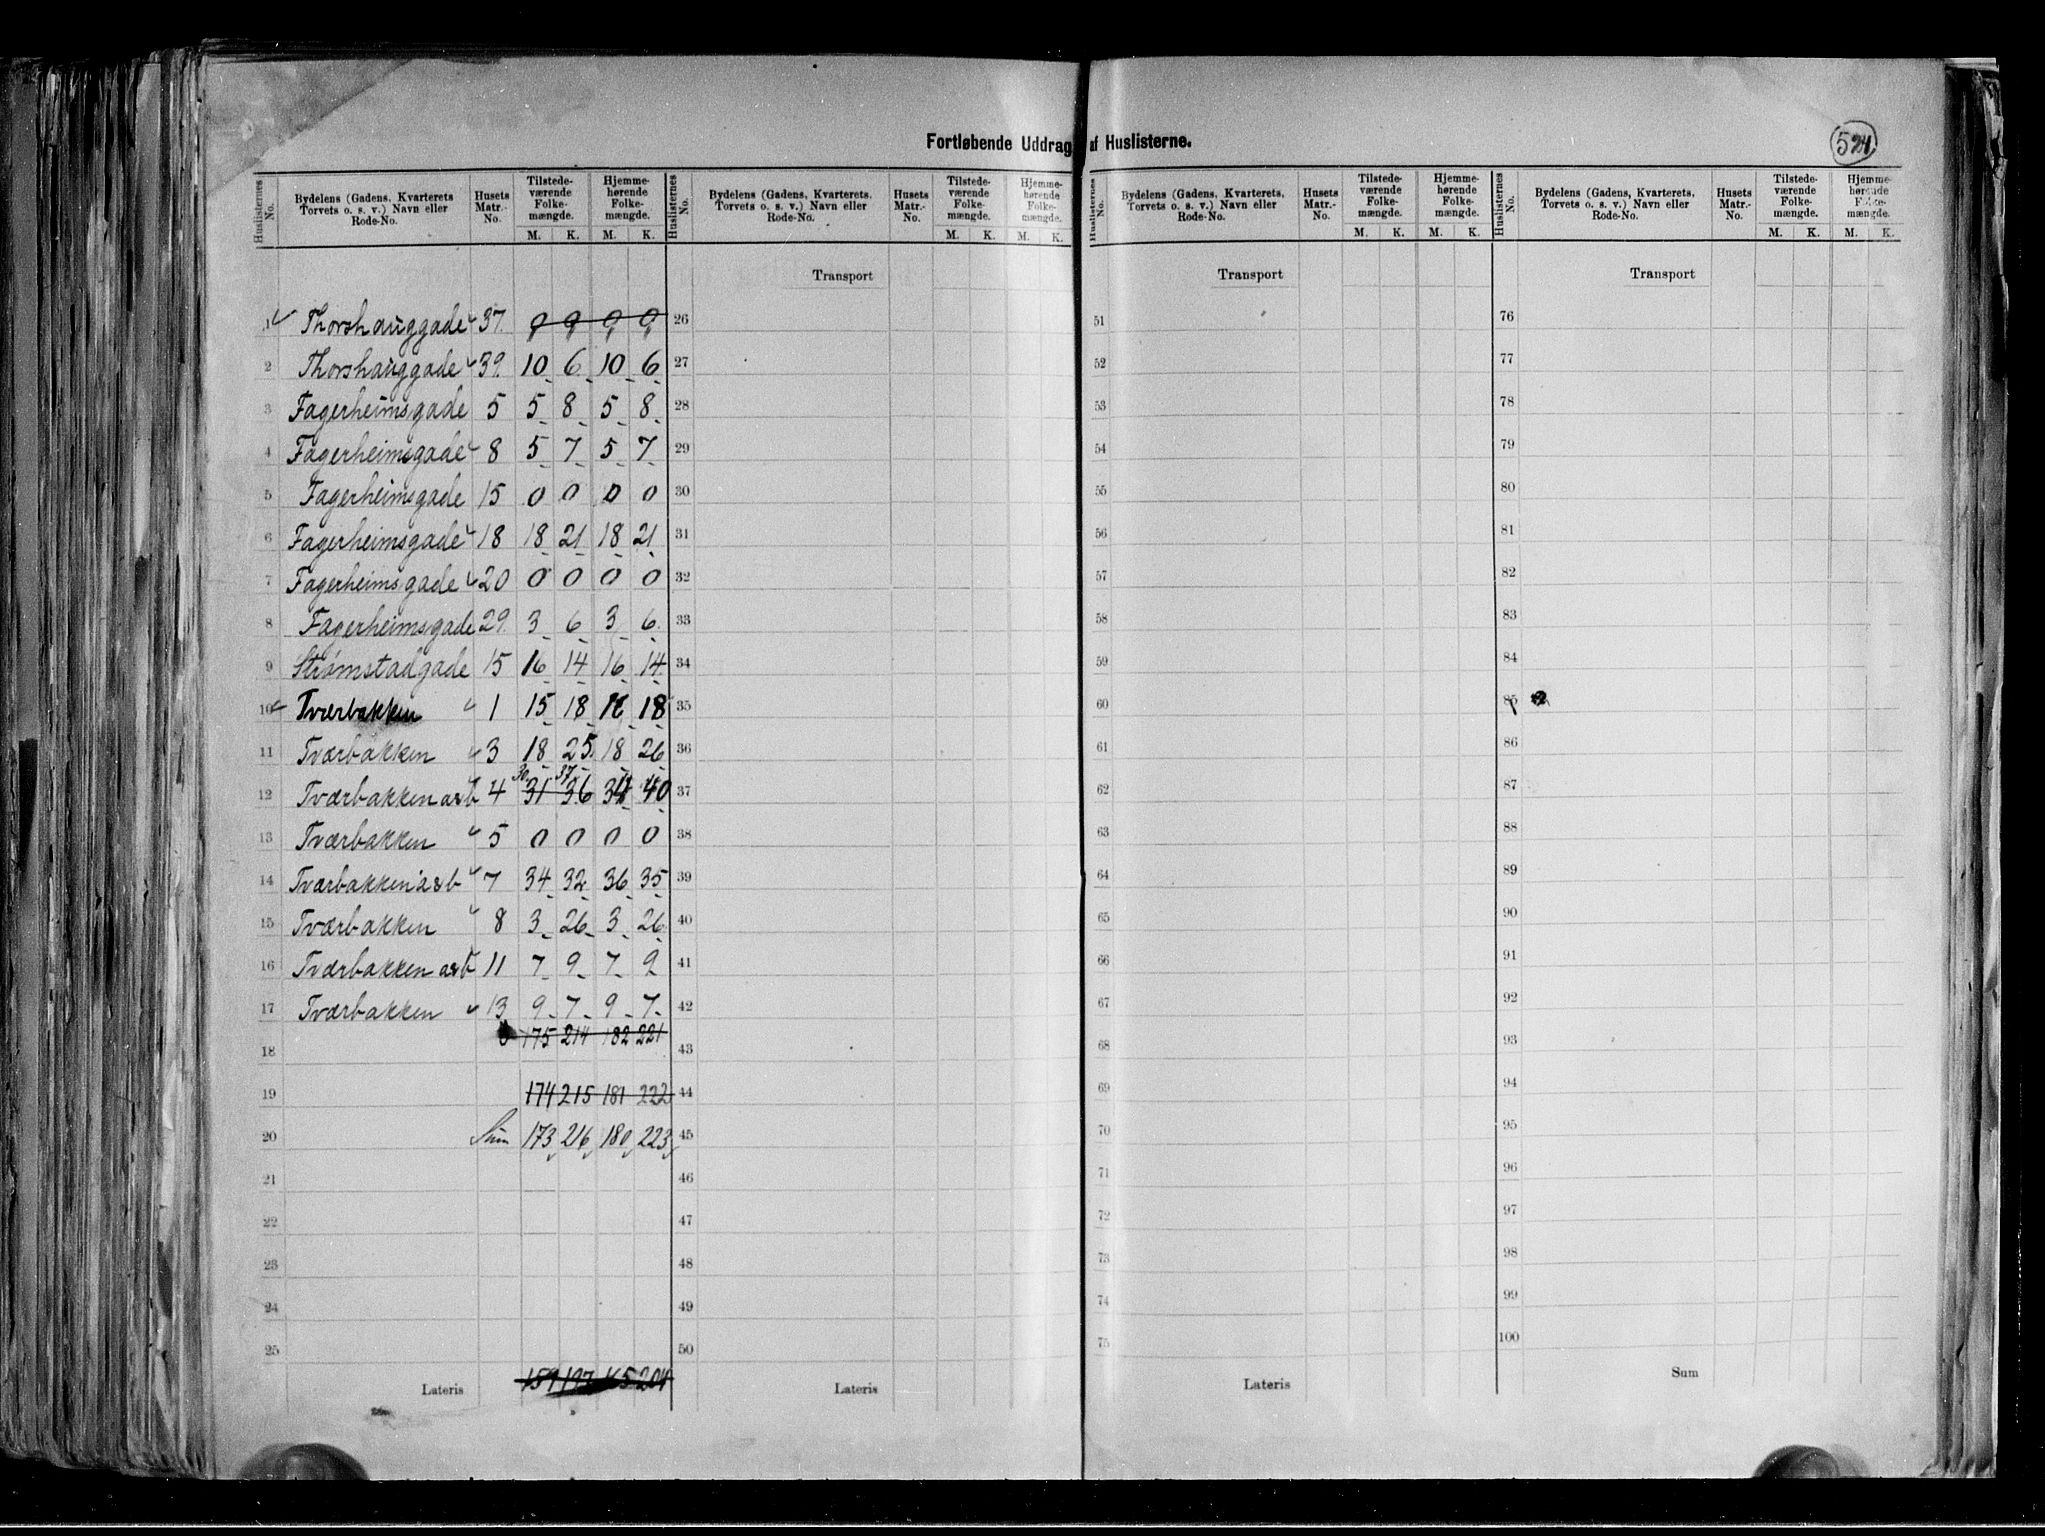 Fortløbende Uddrag af Huslisterne.
524
Huslisternes No. Bydelens (Gadens, Kvarterets Torvets o. s. v.) Navn eller Rode-No. Husets Matr.-No. Tilstedeværende Folkemængde. M. K. Hjemmehørende Folkemængde. M. K.
Huslisternes No. Bydelens (Gadens, Kvarterets, Torvets o. s. v.) Navn eller Rode-No. Husets Matr.-No. Tilstedeværende Folkemængde. M. K. Hjemmehørende Folkemængde. M. K.
Huslisternes No. Bydelens (Gadens, Kvarterets, Torvets o. s. v.) Navn eller Rode-No. Husets Matr.-No. Tilstedeværende Folkemængde. M. K. Hjemmehørende Folkemængde. M. K.
Huslisternes No. Bydelens (Gadens, Kvarterets, Torvets o. s. v.) Navn eller Rode-No. Husets Matr.-No. Tilstedeværende Folkemængde. M. K. Hjemmehørende Folkemængde. M. K.
Transport Transport Transport
1 Thorshauggade 37. 9 9 9 9 26 51 76
2 Thorshauggade 39. 10 6 10 6 27 52 77
3 Fagerheimsgade 5 5 8 5 8 28 53 78
4 Fagerheimsgade 8 5 7 5 7 29 54 79
5 Fagerheimsgade 15 0 0 0 0 30 55 80
6 Fagerheimsgade 18 18 21 18 21 31 56 81
7 Fagerheimsgade 20 0 0 0 0 32 57 82
8 Fagerheimsgade 29. 3 6 3 6 33 58 83
9 Strømstadgade 15 16 14 16 14 34 59 84
10 Tværbakken 1 15 18 18 35 60 85
11 Tværbakken 3 18 25 18 26 36 61 86
30 37
12 Tværbakken a&b 4 31 36 34 40 37 62 87
13 Tværbakken 5 0 0 0 0 38 63 88
14 Tværbakken a&b 7 34 32 36 35 39 64 89
15 Tværbakken 8 3 26 3 26 40 65 90
16 Tværbakken a&b 11 7 9 7 9 41 66 91
17 Tværbakken 13 9 7 9 7 42 67 92
175 214 182 221
18 43 68 93
19 174 215 181 222 44 69 94
20 Sum 173 216 180 223 45 70 95
21 46 71 96
22 47 72 97
23 48 73 98
24 49 74 99
25 50 75 100
Lateris 159 197 204 Lateris Lateris Sum